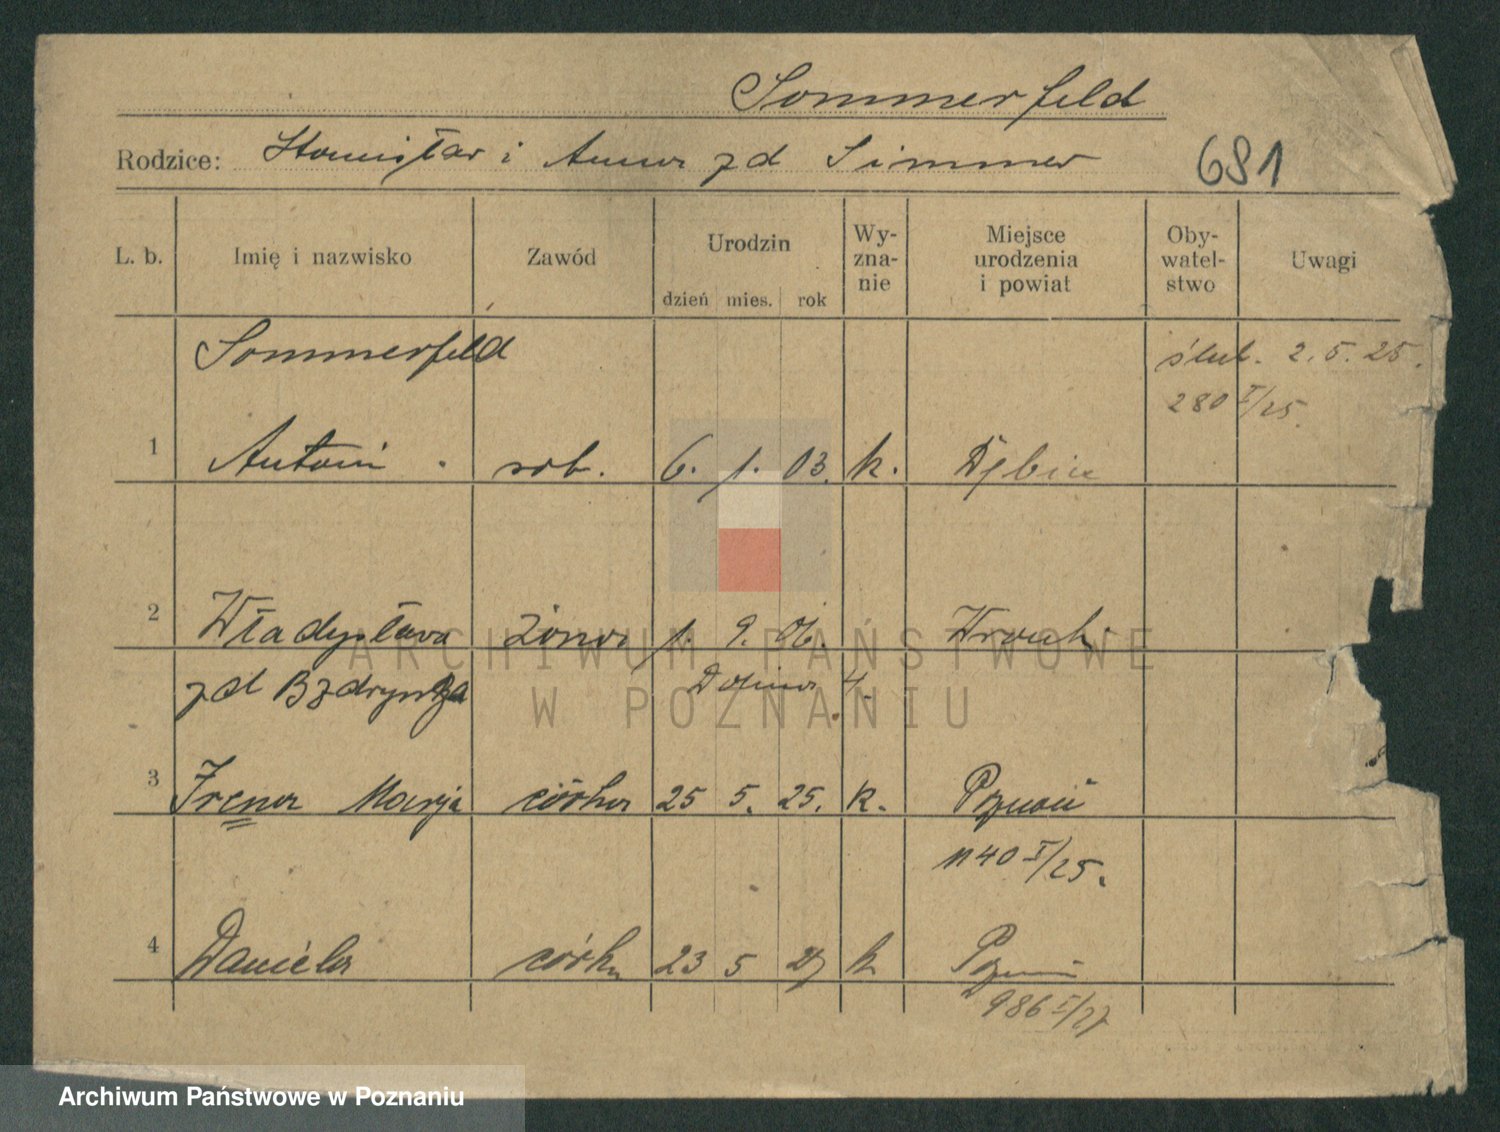 Sommerfeld
Rodzice: Stanisław i Anna zd Simmer 681
L. b. Imię i nazwisko Zawód Urodzin dzień mies. rok Wy-zna-nie Miejsce urodzenia i powiat Oby-watel-stwo Uwagi
Sommerfeld ślub. 2. 5. 25.
280 I/25.
1 Antoni rob. 6. 1. 03. k. Dębiec
2 Władysława żona 1. 9. 06. Wronki
zd Dolina 4.
3 Irena Marja córka 25 5. 25. k. Poznań
1140 I/25.
4 Daniela córka 23 5 27 k Poznań
986 I/27
ARCHIWUM PAŃSTWOWE
W POZNANIU
Archiwum Państwowe w Poznaniu